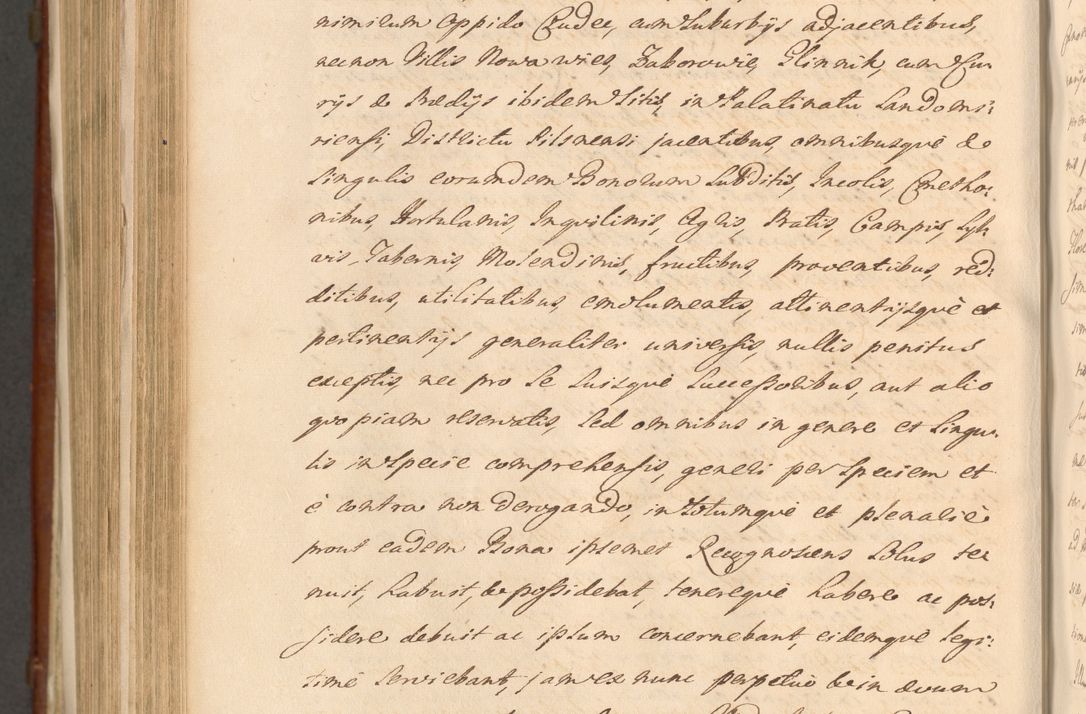 nimirum oppido Czudec, cum suburbijs adjacentibus,
nec non Villis Nowa wies, Zaborowie, Glinnik, cum Cu
rijs & Prædijs ibidem sitis, in Palatinatu Sandomi:
riensi, Districtu Pilsnensi jacentibus, omnibusquè &
singulis eorumdem Bonorum Subditis, Incolis, Cmetho:
nibus, Hortulanis, Inquilinis, Agris, Pratis, Campis, Syl:
vis, Tabernis, Molendinis, fructibus, proventibus, red:
ditibus, utilitatibus, emolumentis, attinentijsquè et
pertinentijs generaliter universis, nullis penitus
exceptis, nec pro se suisquè Successoribus, aut alio
quo piam reservatis, sed omnibus in genere et singu:
lis in specie comprehensis, generi per speciem et
è contra non derogando, in totumquè et plenariè
prout eadem Bona ipsemet Recognoscens solus te
nuit, habuit, & possidebat, tenerequè habere ac pos:
sidere debuit ac ipsum concernebant, eidemquè legi:
timè serviebant, jam ex nunc perpetuò & in ævum